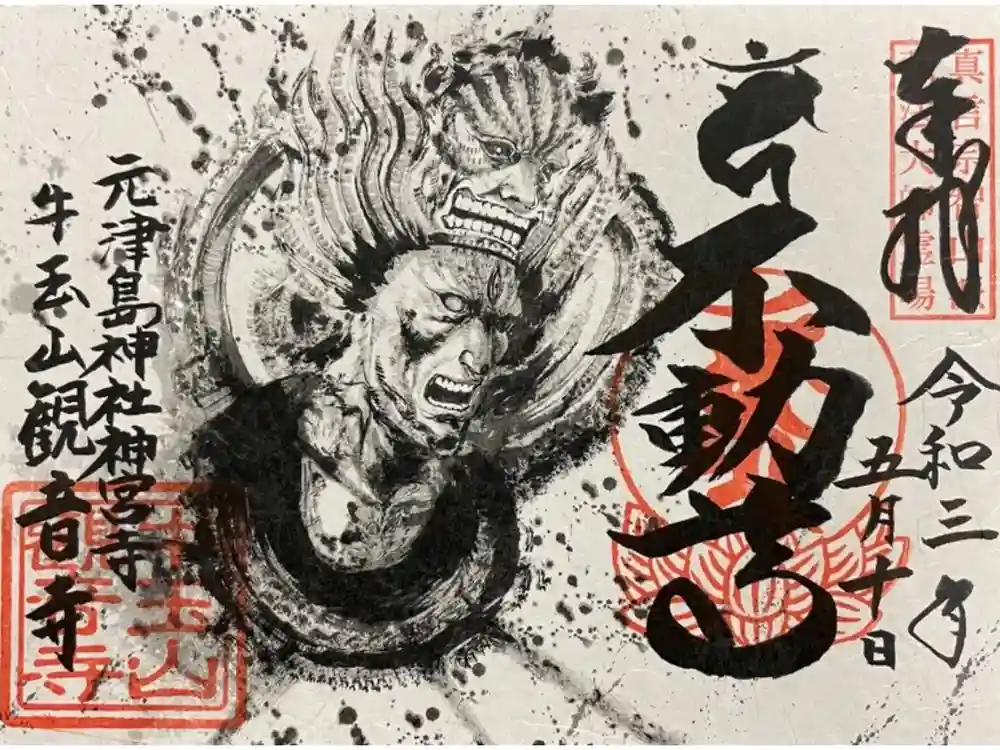 奉拝
真言宗智山派
弘法大師霊場
令和三年
五月十日
不動尊
元津島神社神宮寺
牛玉山観音寺
牛玉山
觀音寺